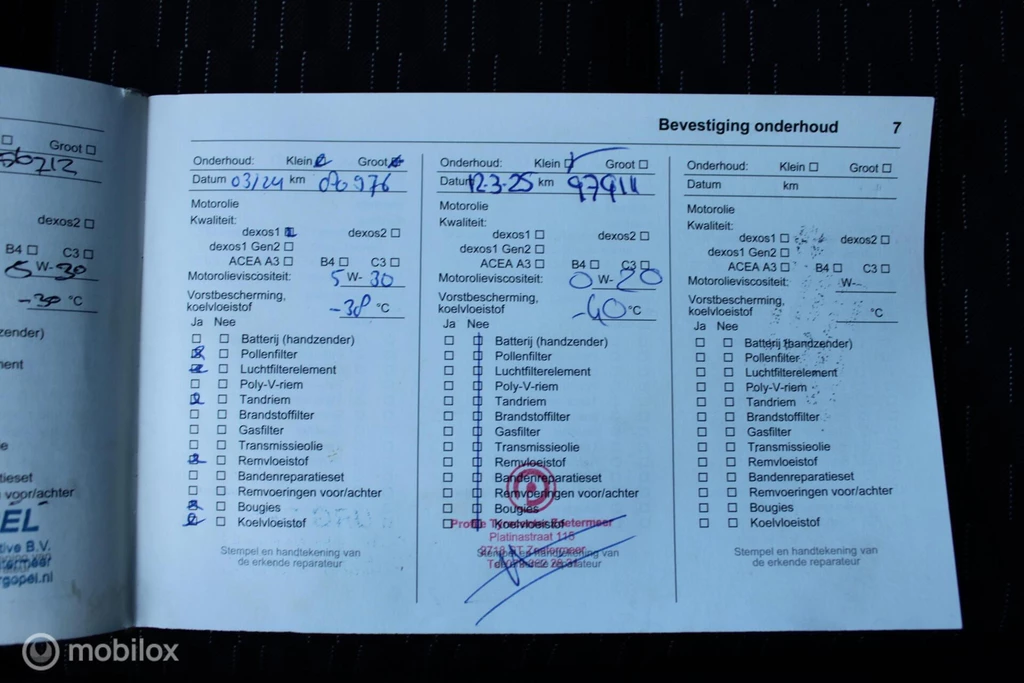 Groot
56712
dexos2
B4 C3
5 W-30
-30 °C
zender)
ment
e
atieset
voor/achter
EL
tive B.V.
termeer
rgopel.nl
Bevestiging onderhoud 7
Onderhoud: Klein Groot
Datum 03/24 km 86976
Motorolie
Kwaliteit:
dexos1 dexos2
dexos1 Gen2
ACEA A3 B4 C3
Motorolieviscositeit: 5 W-30
Vorstbescherming,
koelvloeistof -38 °C
Ja Nee
Batterij (handzender)
Pollenfilter
Luchtfilterelement
Poly-V-riem
Tandriem
Brandstoffilter
Gasfilter
Transmissieolie
Remvloeistof
Bandenreparatieset
Remvoeringen voor/achter
Bougies
Koelvloeistof
Stempel en handtekening van
de erkende reparateur
Onderhoud: Klein Groot
Datum 12-3-25 km 97911
Motorolie
Kwaliteit:
dexos1 dexos2
dexos1 Gen2
ACEA A3 B4 C3
Motorolieviscositeit: 0 W-20
Vorstbescherming,
koelvloeistof -40 °C
Ja Nee
Batterij (handzender)
Pollenfilter
Luchtfilterelement
Poly-V-riem
Tandriem
Brandstoffilter
Gasfilter
Transmissieolie
Remvloeistof
Bandenreparatieset
Remvoeringen voor/achter
Bougies
Koelvloeistof
Zoetermeer
Platinastraat 115
Stempel en handtekening van
de erkende reparateur
Onderhoud: Klein Groot
Datum km
Motorolie
Kwaliteit:
dexos1 dexos2
dexos1 Gen2
ACEA A3 B4 C3
Motorolieviscositeit: W-
Vorstbescherming,
koelvloeistof °C
Ja Nee
Batterij (handzender)
Pollenfilter
Luchtfilterelement
Poly-V-riem
Tandriem
Brandstoffilter
Gasfilter
Transmissieolie
Remvloeistof
Bandenreparatieset
Remvoeringen voor/achter
Bougies
Koelvloeistof
Stempel en handtekening van
de erkende reparateur
mobilox